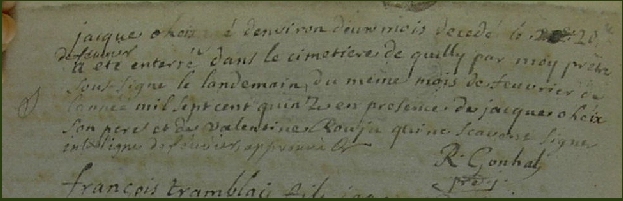 jacque oheix é d'environ deux mois decedé le 20e
de feuvrier
a eté enterré dans le cimetiere de quilly par moy pretre
sous signe le landemain, du méme mois de feuvrier de
lanneé mil sept cent quinze en presence de jacque oheix
son pere et de valentine Roussu qui ne scavent signer
interligne de feuvrier approuvé
R. Gonhal
françois tramblay fils